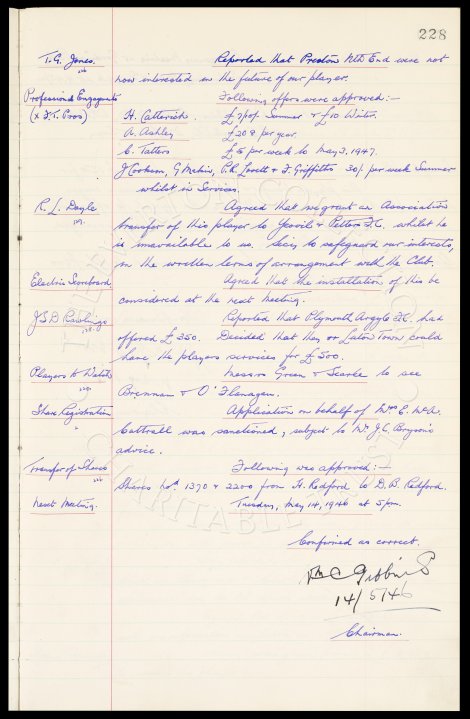 228
T.G. Jones. Reported that Preston Nth End were not
now interested in the future of our player.
Professional Engagements Following offers were approved:-
(x F.T. Pros) H. Catterick. £7 p/w Summer & £10 Winter.
A. Ashley £208 per year.
C. Tatters £5 per week to May 3, 1947.
J Cookson, G Makin, P.R. Lovett & F. Griffiths 30/- per week Summer
whilst in Services.
R. L. Doyle Agreed that we grant an Association
transfer of this player to Yeovil & Petters F.C. whilst he
is unavailable to us. Secy to safeguard our interests,
in the written terms of arrangement with the Club.
Electric Scoreboard Agreed that the installation of this be
considered at the next meeting.
J.S.D. Rawlings Reported that Plymouth Argyle F.C. had
offered £350. Decided that they or Luton Town could
have the players services for £500.
Players to Watch Messrs Green & Searle to see
Brennan & O'Flanagan.
Share Registration Application on behalf of Mrs E. McA.
Cattrall was sanctioned, subject to Mr J.C. Bryson's
advice.
Transfer of Shares Following was approved:-
Shares nos. 1370 & 2200 from H. Redford to D.B. Redford.
Next Meeting. Tuesday, May 14, 1946 at 5pm.
Confirmed as correct.
Wm C Gibbins
14/5/46
Chairman.